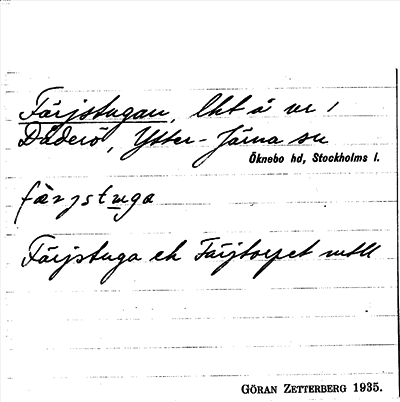 Färjstugan, lht å nr 1
Dåderö, Ytter-Järna sn
Öknebo hd, Stockholms l.
färjstuga
Färjstuga el Färjtorpet mtll
GÖRAN ZETTERBERG 1935.